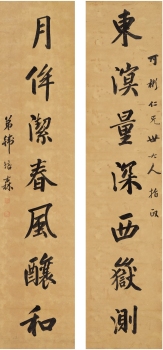 可彬仁兄世大人指政
東溟量深西嶽測
月侔潔春風釀和
弟韓培森